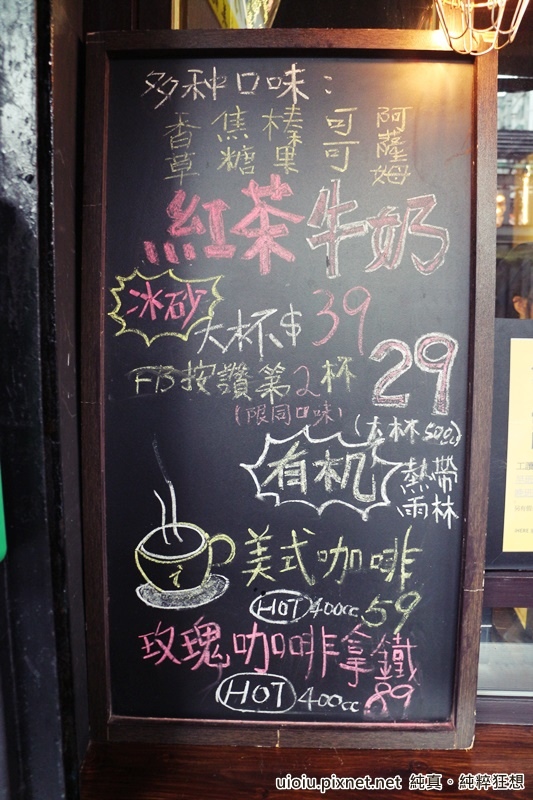 多种口味：
香草 焦糖 榛果 可可 阿薩姆
紅茶牛奶
冰砂
大杯$39
FB按讚第2杯 29
(限同口味)
(大杯500cc)
有机
熱帶
雨林
美式咖啡
HOT 400cc 59
玫瑰咖啡拿鐵
HOT 400cc 89
uioiu.pixnet.net 純真。純粹狂想